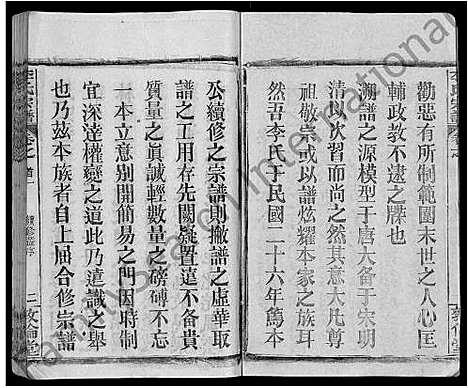 勸惡有所制範圍末世之人心匡
輔政教不逮之牒也
溯譜之源模型于唐大备于宋明
清以次習而尚之然其意大凡尊
祖敬宗或以譜炫耀本家之族耳
然吾李氏于民國二十六年為本
公續修之宗譜則撇譜之虛華取
譜之工用存先闕疑置遠不备貴
質量之真誠輕數量之磅礡不忘
一本立意別開簡易之門因時制
宜深達權變之道此乃遠識之舉
也乃茲本族者自上屆合修宗譜
李氏宗譜
卷之首
二 敦倫堂